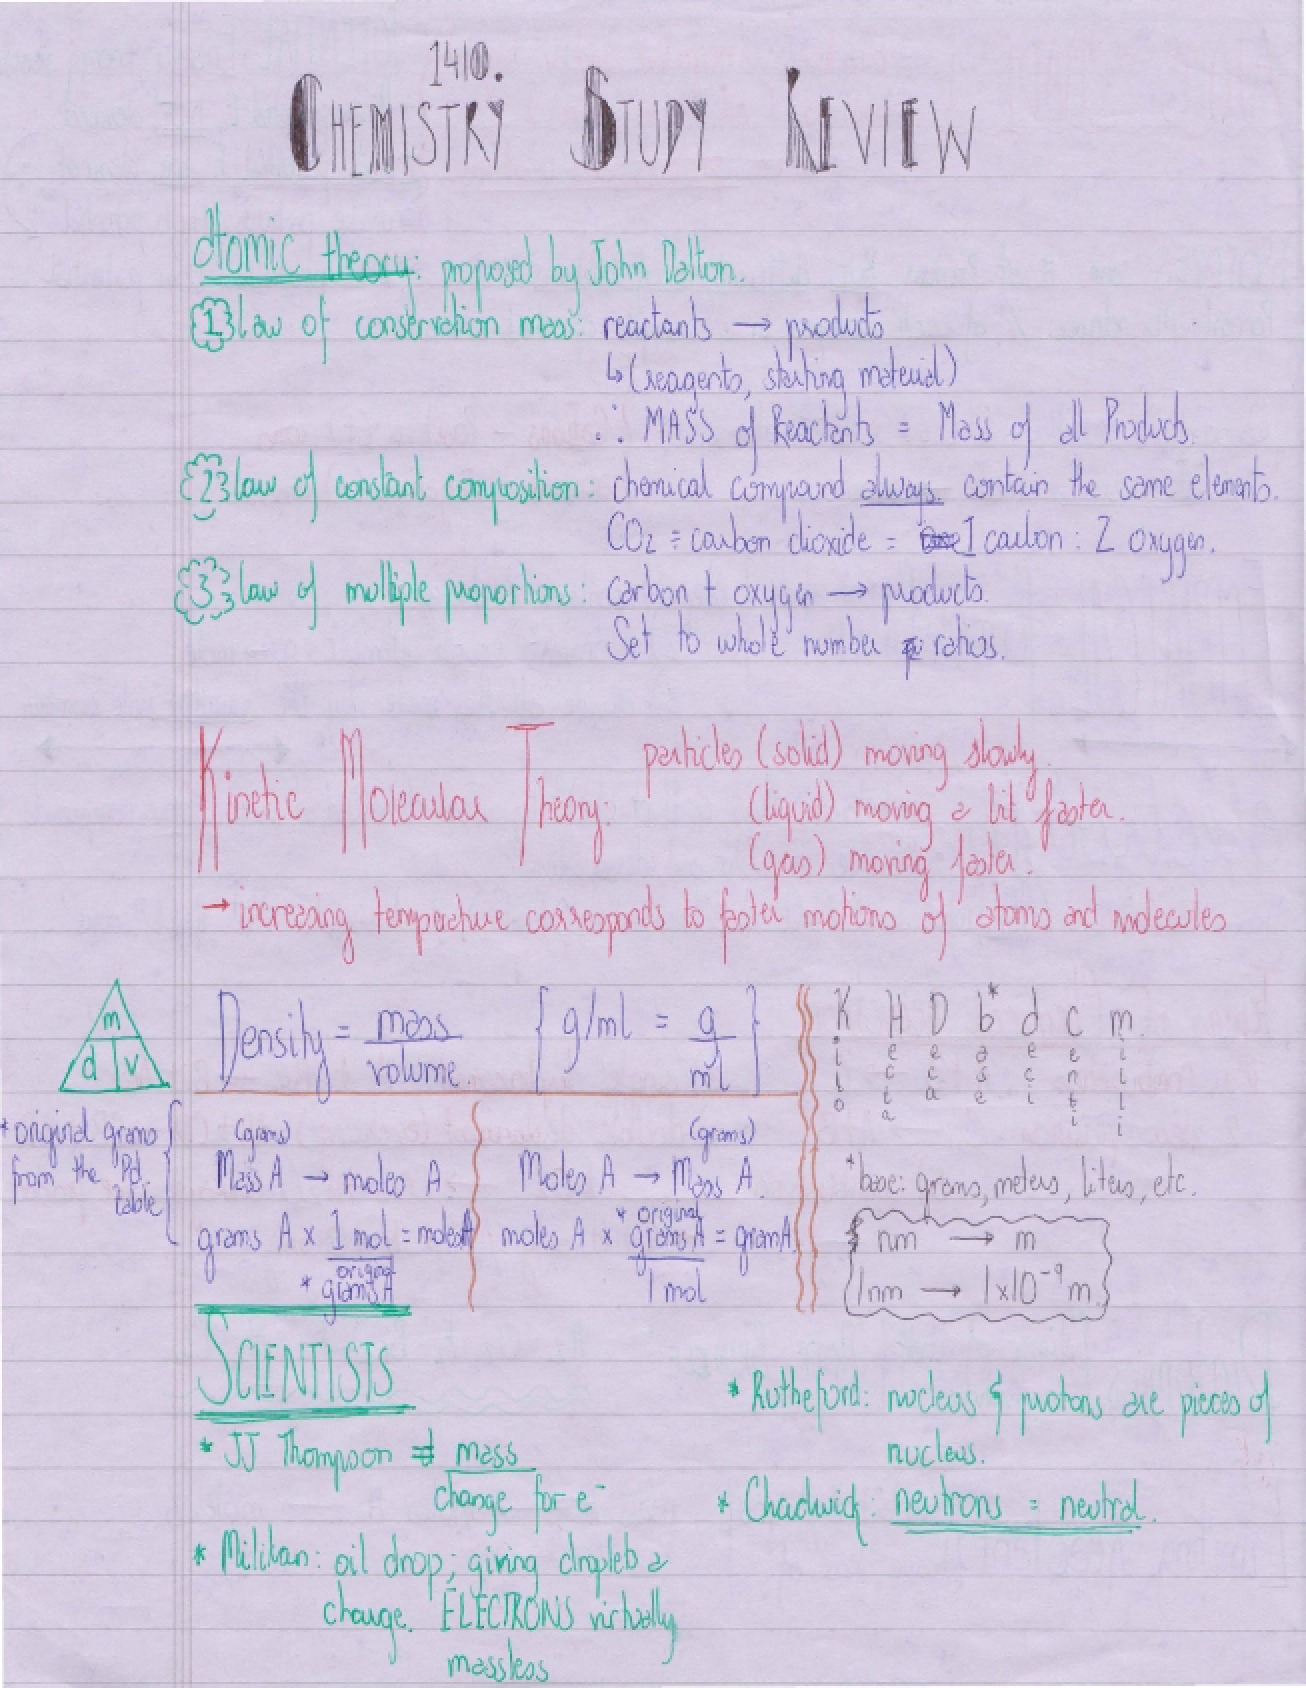 1410.
CHEMISTRY STUDY REVIEW
Atomic theory: proposed by John Dalton.
1 law of conservation mass: reactants → products
↳ (reagents, starting material)
∴ MASS of Reactants = Mass of all Products.
2 law of constant composition: chemical compound always contain the same elements.
CO₂ = carbon dioxide = 1 carbon : 2 oxygen.
3 law of multiple proportions: carbon + oxygen → products.
Set to whole number ratios.
Kinetic Molecular Theory: particles (solid) moving slowly.
(liquid) moving a bit faster.
(gas) moving faster.
→ increasing temperature corresponds to faster motions of atoms and molecules
m
d v
Density = mass / volume. { g/ml = g / ml }
Kilo Hecta Deca base* deci centi milli
*base: grams, meters, liters, etc.
nm → m
1nm → 1x10⁻⁹ m.
*original grams from the Pd. table
(grams)
Mass A → moles A.
grams A x 1 mol / *original grams A = moles A
(grams)
Moles A → Mass A.
moles A x *original grams A / 1 mol = gram A.
SCIENTISTS
* JJ Thompson = mass / charge for e⁻
* Milikan: oil drop; giving droplets a
charge. ELECTRONS virtually
massless
* Rutheford: nucleus & protons are pieces of
nucleus.
* Chadwick: neutrons = neutral.